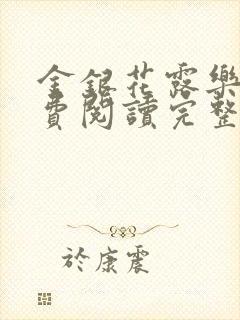 金銀花露樂
費閱讀完整
於康震